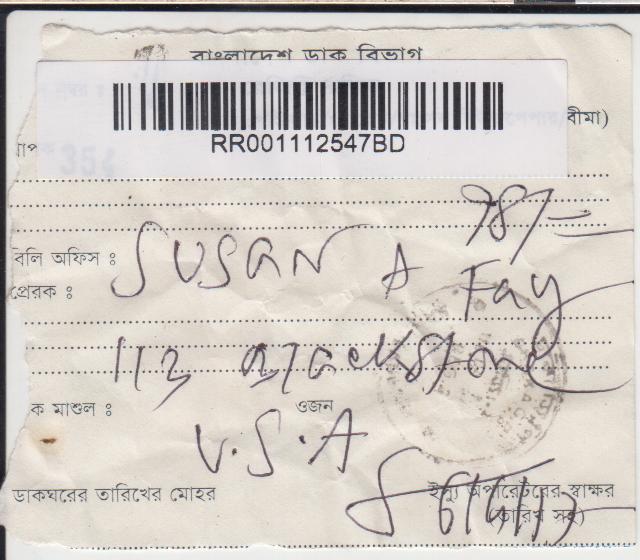 বাংলাদেশ ডাক বিভাগ
বীমা)
RR001112547BD
98/-
বিলি অফিস :
SUSAN A Fay
প্রেরক :
113 Blackstone
ক মাশুল :
ওজন
U.S.A
ডাকঘরের তারিখের মোহর
ইস্যু অপারেটরের স্বাক্ষর
(তারিখ সহ)